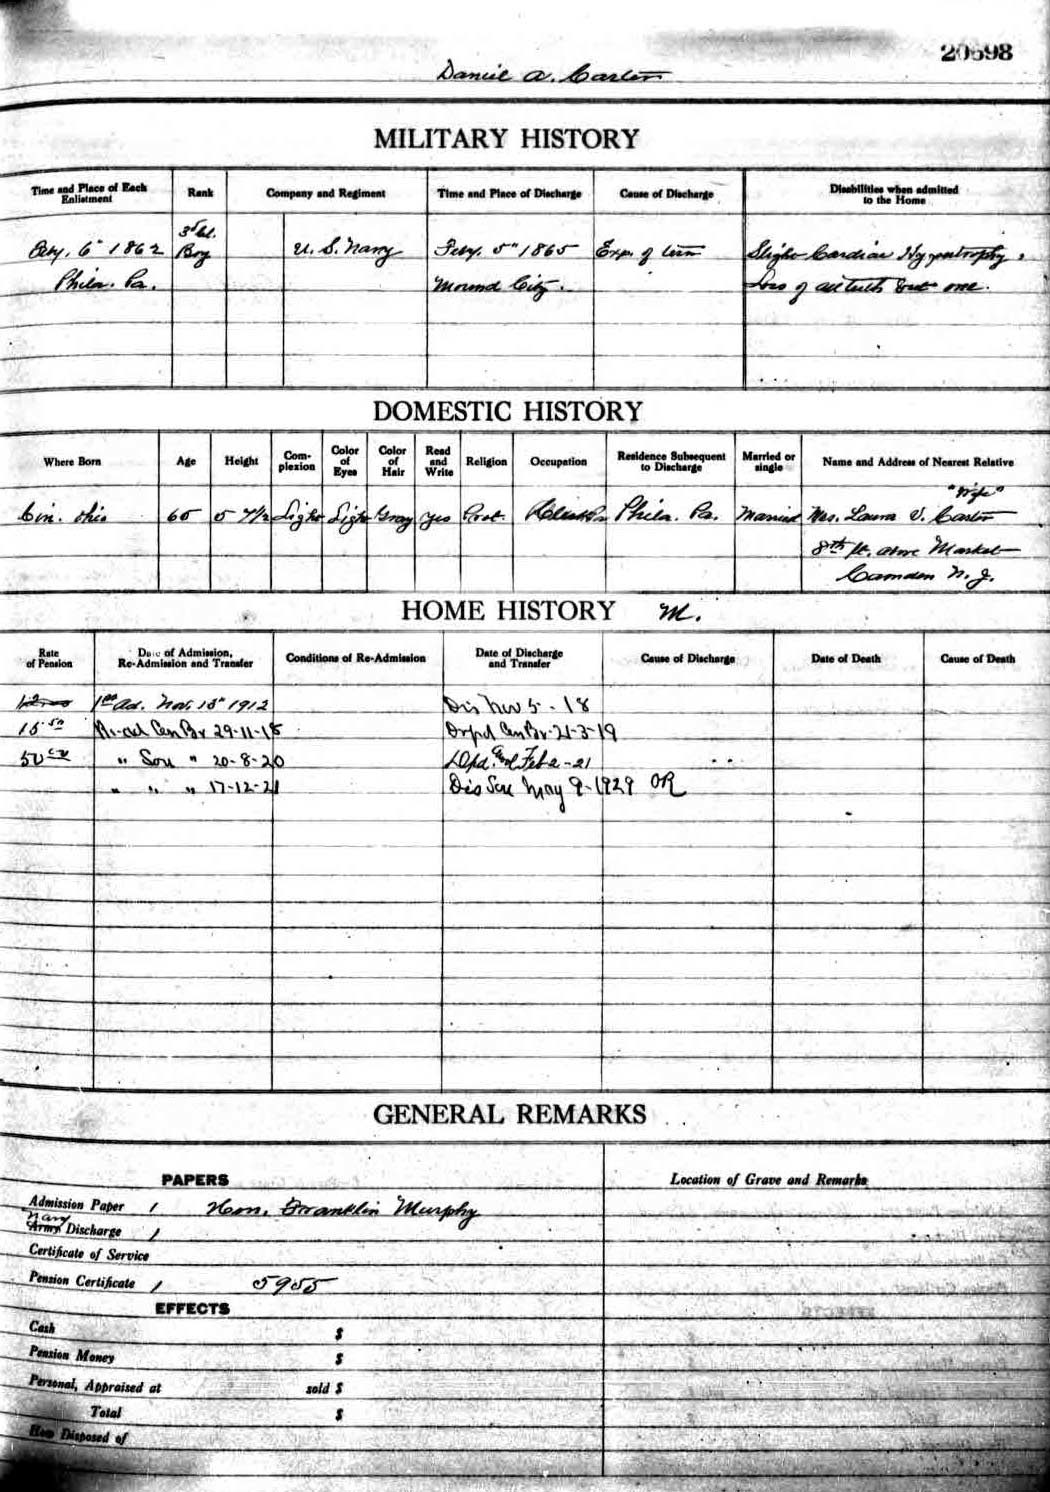 20698
Daniel A. Carter
MILITARY HISTORY
Time and Place of Each Enlistment
Rank
Company and Regiment
Time and Place of Discharge
Cause of Discharge
Disabilities when admitted to the Home
3d cl.
Feby. 6" 1862 Boy U. S. Navy Feby. 5" 1865 Exp. of term Slight Cardiac Hypertrophy,
Phila. Pa. Mound City. Loss of all teeth but one.
DOMESTIC HISTORY
Where Born
Age
Height
Complexion
Color of Eyes
Color of Hair
Read and Write
Religion
Occupation
Residence Subsequent to Discharge
Married or single
Name and Address of Nearest Relative
"Wife"
Cin. Ohio 65 5 7 1/2 Light Light Gray Yes Prot. Phila. Pa. Married Mrs. Laura V. Carter
8th St. above Market
Camden N. J.
HOME HISTORY M.
Rate of Pension
Date of Admission, Re-Admission and Transfer
Conditions of Re-Admission
Date of Discharge and Transfer
Cause of Discharge
Date of Death
Cause of Death
12.00 1st Ad. Nov. 15" 1912 Dis Nov 5 - 18
15 50 Re-ad Cen Br 29-11-18 Drpd Cen Br. 21-3-19
50 00 " Sou " 20-8-20 Dpd. Feb 2-21
" " " 17-12-21 Dis Sou May 9-1929 OR
GENERAL REMARKS
PAPERS
Location of Grave and Remarks
Admission Paper 1 Hon. Franklin Murphy
Navy
Army Discharge 1
Certificate of Service
Pension Certificate 1 5955
EFFECTS
Cash $
Pension Money $
Personal, Appraised at sold $
Total $
How Disposed of